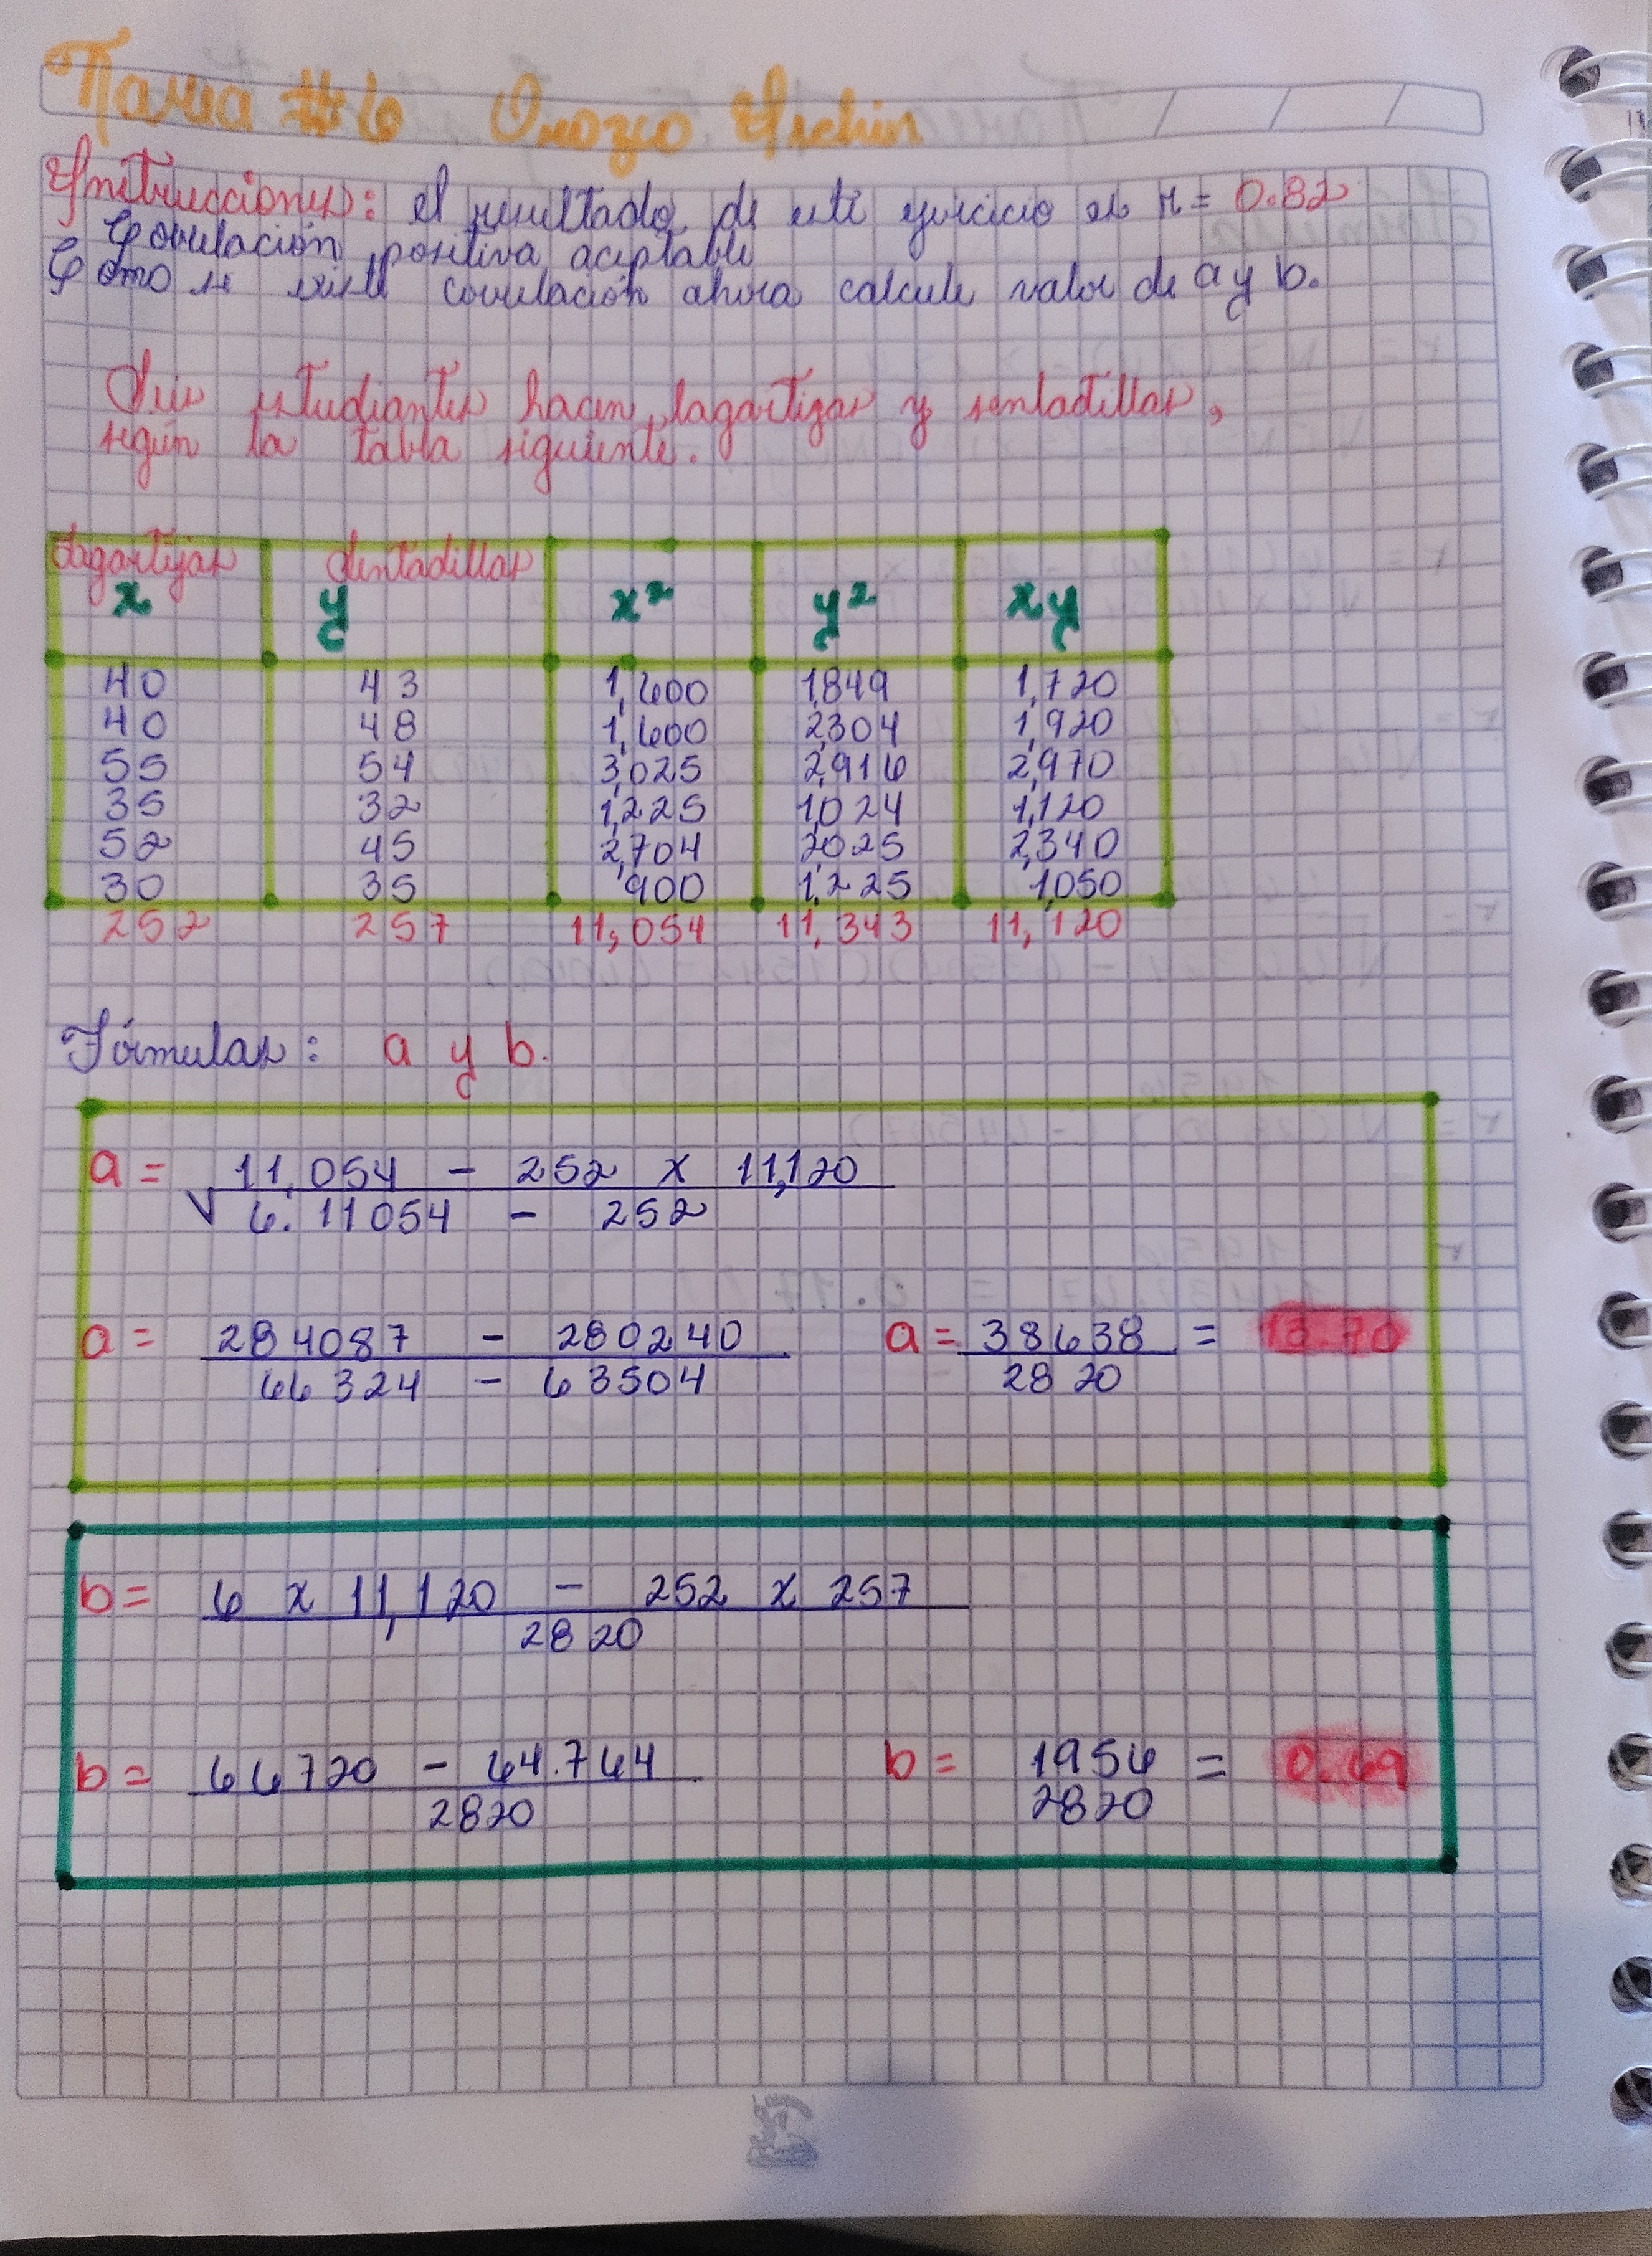 Tarea #6 Orozco Ixchin
Instrucciones: el resultado de este ejercicio es r = 0.82
Correlación positiva aceptable
Como se existe correlación ahora calcule valor de a y b.
Seis estudiantes hacen lagartizas y sentadillas,
según la tabla siguiente.
Lagartijas Sentadillas
x y x² y² xy
40 43 1,600 1,849 1,720
40 48 1,600 2,304 1,920
55 54 3,025 2,916 2,970
35 32 1,225 1,024 1,120
52 45 2,704 2,025 2,340
30 35 900 1,225 1,050
252 257 11,054 11,343 11,120
Fórmulas: a y b.
a = 11,054 - 252 x 11,120
√ 6. 11054 - 252
a = 284087 - 280240 a = 38638 = 13.70
66324 - 63504 2820
b = 6 x 11,120 - 252 x 257
2820
b = 66720 - 64.764 b = 1956 = 0.69
2820 2820